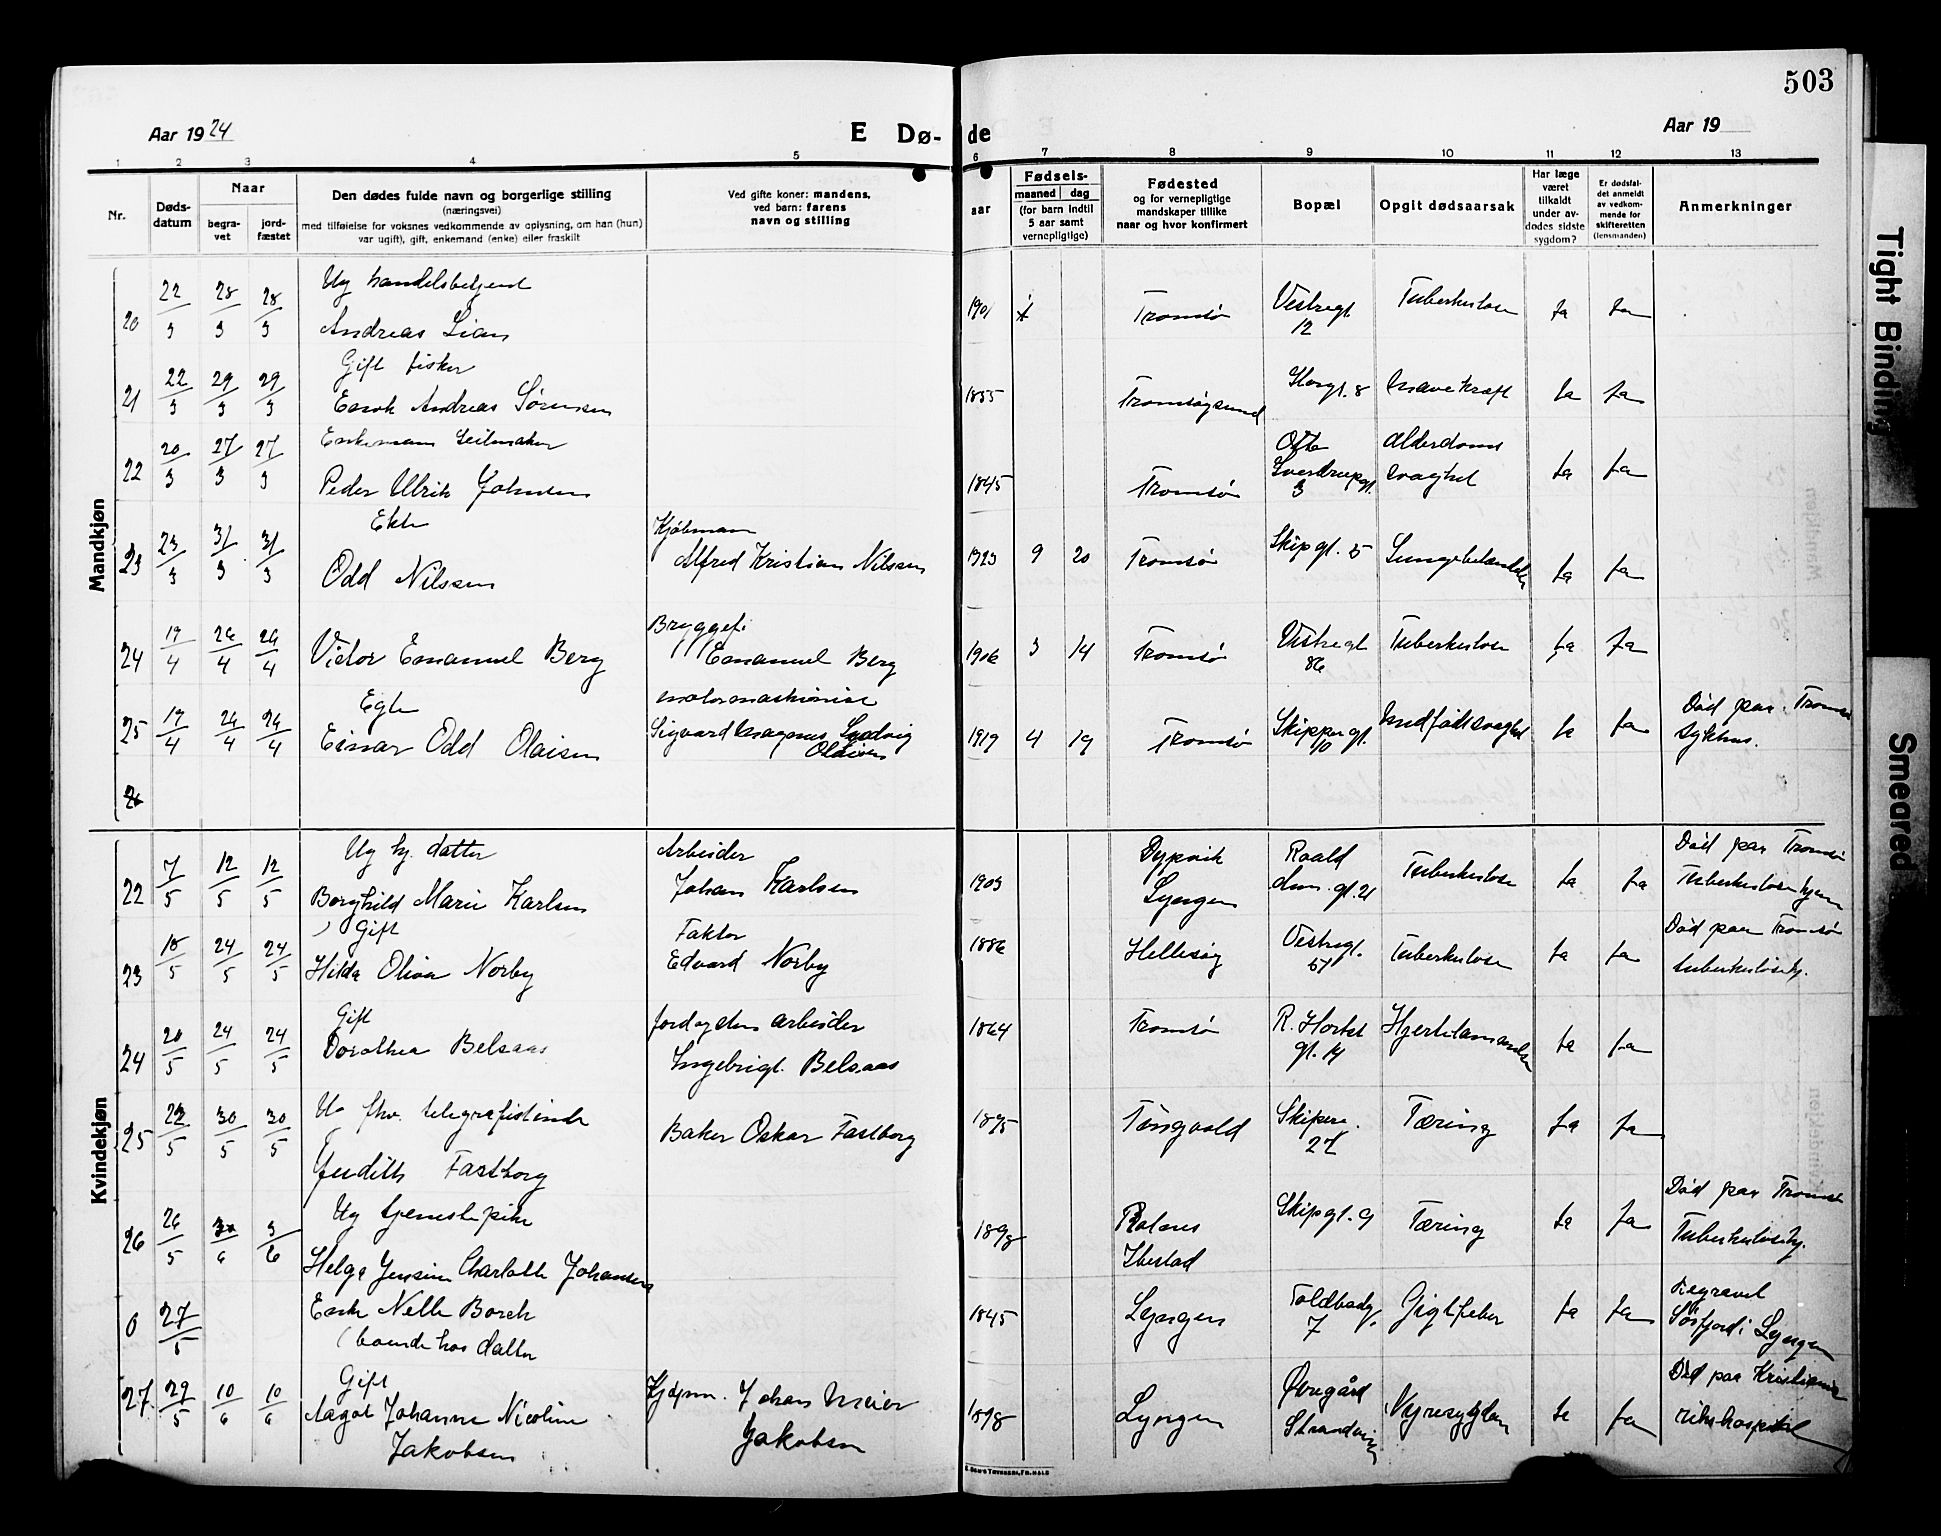 503
Aar 1924
E Dø-
de
Aar 19
1 2 3 4 5 6 7 8 9 10 11 12 13
Nr.
Døds-
datum
Naar
begra-
vet
jord-
fæstet
Den dødes fulde navn og borgerlige stilling
(næringsvei)
med tilføielse for voksnes vedkommende av oplysning, om han (hun)
var ugift), gift, enkemand (enke) eller fraskilt
Ved gifte koner: mandens,
ved barn: farens
navn og stilling
aar
Fødsels-
maaned dag
(for barn indtil
5 aar samt
vernepligtige)
Fødested
og for vernepligtige
mandskaper tillike
naar og hvor konfirmert
Bopæl
Opgit dødsaarsak
Har læge
været
tilkaldt
under av-
dødes sidste
sygdom?
Er dødsfal-
det anmeldt
av vedkom-
mende for
skifteretten
(lensmanden)
Anmerkninger
Mandkjøn
20 22/3 28/3 28/3 Ug handelsbetjent
Andreas Lian 1901 Tromsø Vestregt 12 Tuberkulose Ja Ja
21 22/3 29/3 29/3 Gift fisker
Enok Andreas Sørensen 1855 Tromsøysund Storgt. 8 Mavekræft Ja Ja
22 20/3 27/3 27/3 Enkemann Seilmaker
Peder Ulrik Johnsen 1845 Tromsø Otto Sverdrupgt. 3 Alderdoms svaghet Ja Ja
23 23/3 31/3 31/3 Ekte
Odd Nilsen Kjøbmann
Alfred Kristian Nilsen 1923 9 20 Tromsø Skipgt. 5 Ja Ja
24 19/4 26/4 26/4 Victor Emanuel Berg Bryggef.
Emanuel Berg 1906 3 14 Tromsø Vestregt 86 Tuberkulose Ja Ja
25 19/4 26/4 26/4 Egte
Einar Odd Olaisen motormaskinist
Sigvard Magnus Ludvig
Olaisen 1919 4 19 Tromsø Skippergt. 10 Medfødt svaghet Ja Ja Død paa Tromsø
sykhus.
26
Kvindekjøn
22 7/5 12/5 12/5 Ug hj. datter
Borghild Marie Karlsen Arbeider
Johan Karlsen 1903 Dypvik
Lyngen Roald
Amu. gt. 21 Tuberkulose Ja Ja Død paa Tromsø
Tuberkulosehjem
23 18/5 24/5 24/5 Gift
Hilda Oliva Norby Faktor
Edvard Norby 1886 Hillesøy Vestregt. 57 Tuberkulose Ja Ja Død paa Tromsø
tuberkulosehj.
24 20/5 24/5 24/5 Gift
Dorothea Belsaas Jord og dem arbeider
Ingebrigt Belsaas 1864 Tromsø R. Hortst
gt. 14 Ja Ja
25 22/5 30/5 30/5 U. fhv. telegrafistinde
Judith Fastborg Baker Oskar Fastborg 1895 Skiperg. 27 Tæring Ja Ja
26 26/5 3/6 Ug tjenestepike
Helga Jensine Charlotte Johansen 1898 Rolanes
Ibestad Skipgt. 9 Tæring Ja Ja Død paa Tromsø
Tuberkulosehj.
0 27/5 Enke Nelle Borch
(boende hos datter 1845 Lyngen Toldbodg. 7 Gigtfeber Ja Ja Begravet
Sørfjord i Lyngen
27. 29/5 10/6 10/6 Gift
Aagot Johanne Nicoline
Jakobsen Kjøpm. Johan Meier
Jakobsen 1898 Lyngen Øvregård
Strandvein Nyresygdom Ja Ja Død paa Kristiania
rikshospital
Tight Binding
Smeared